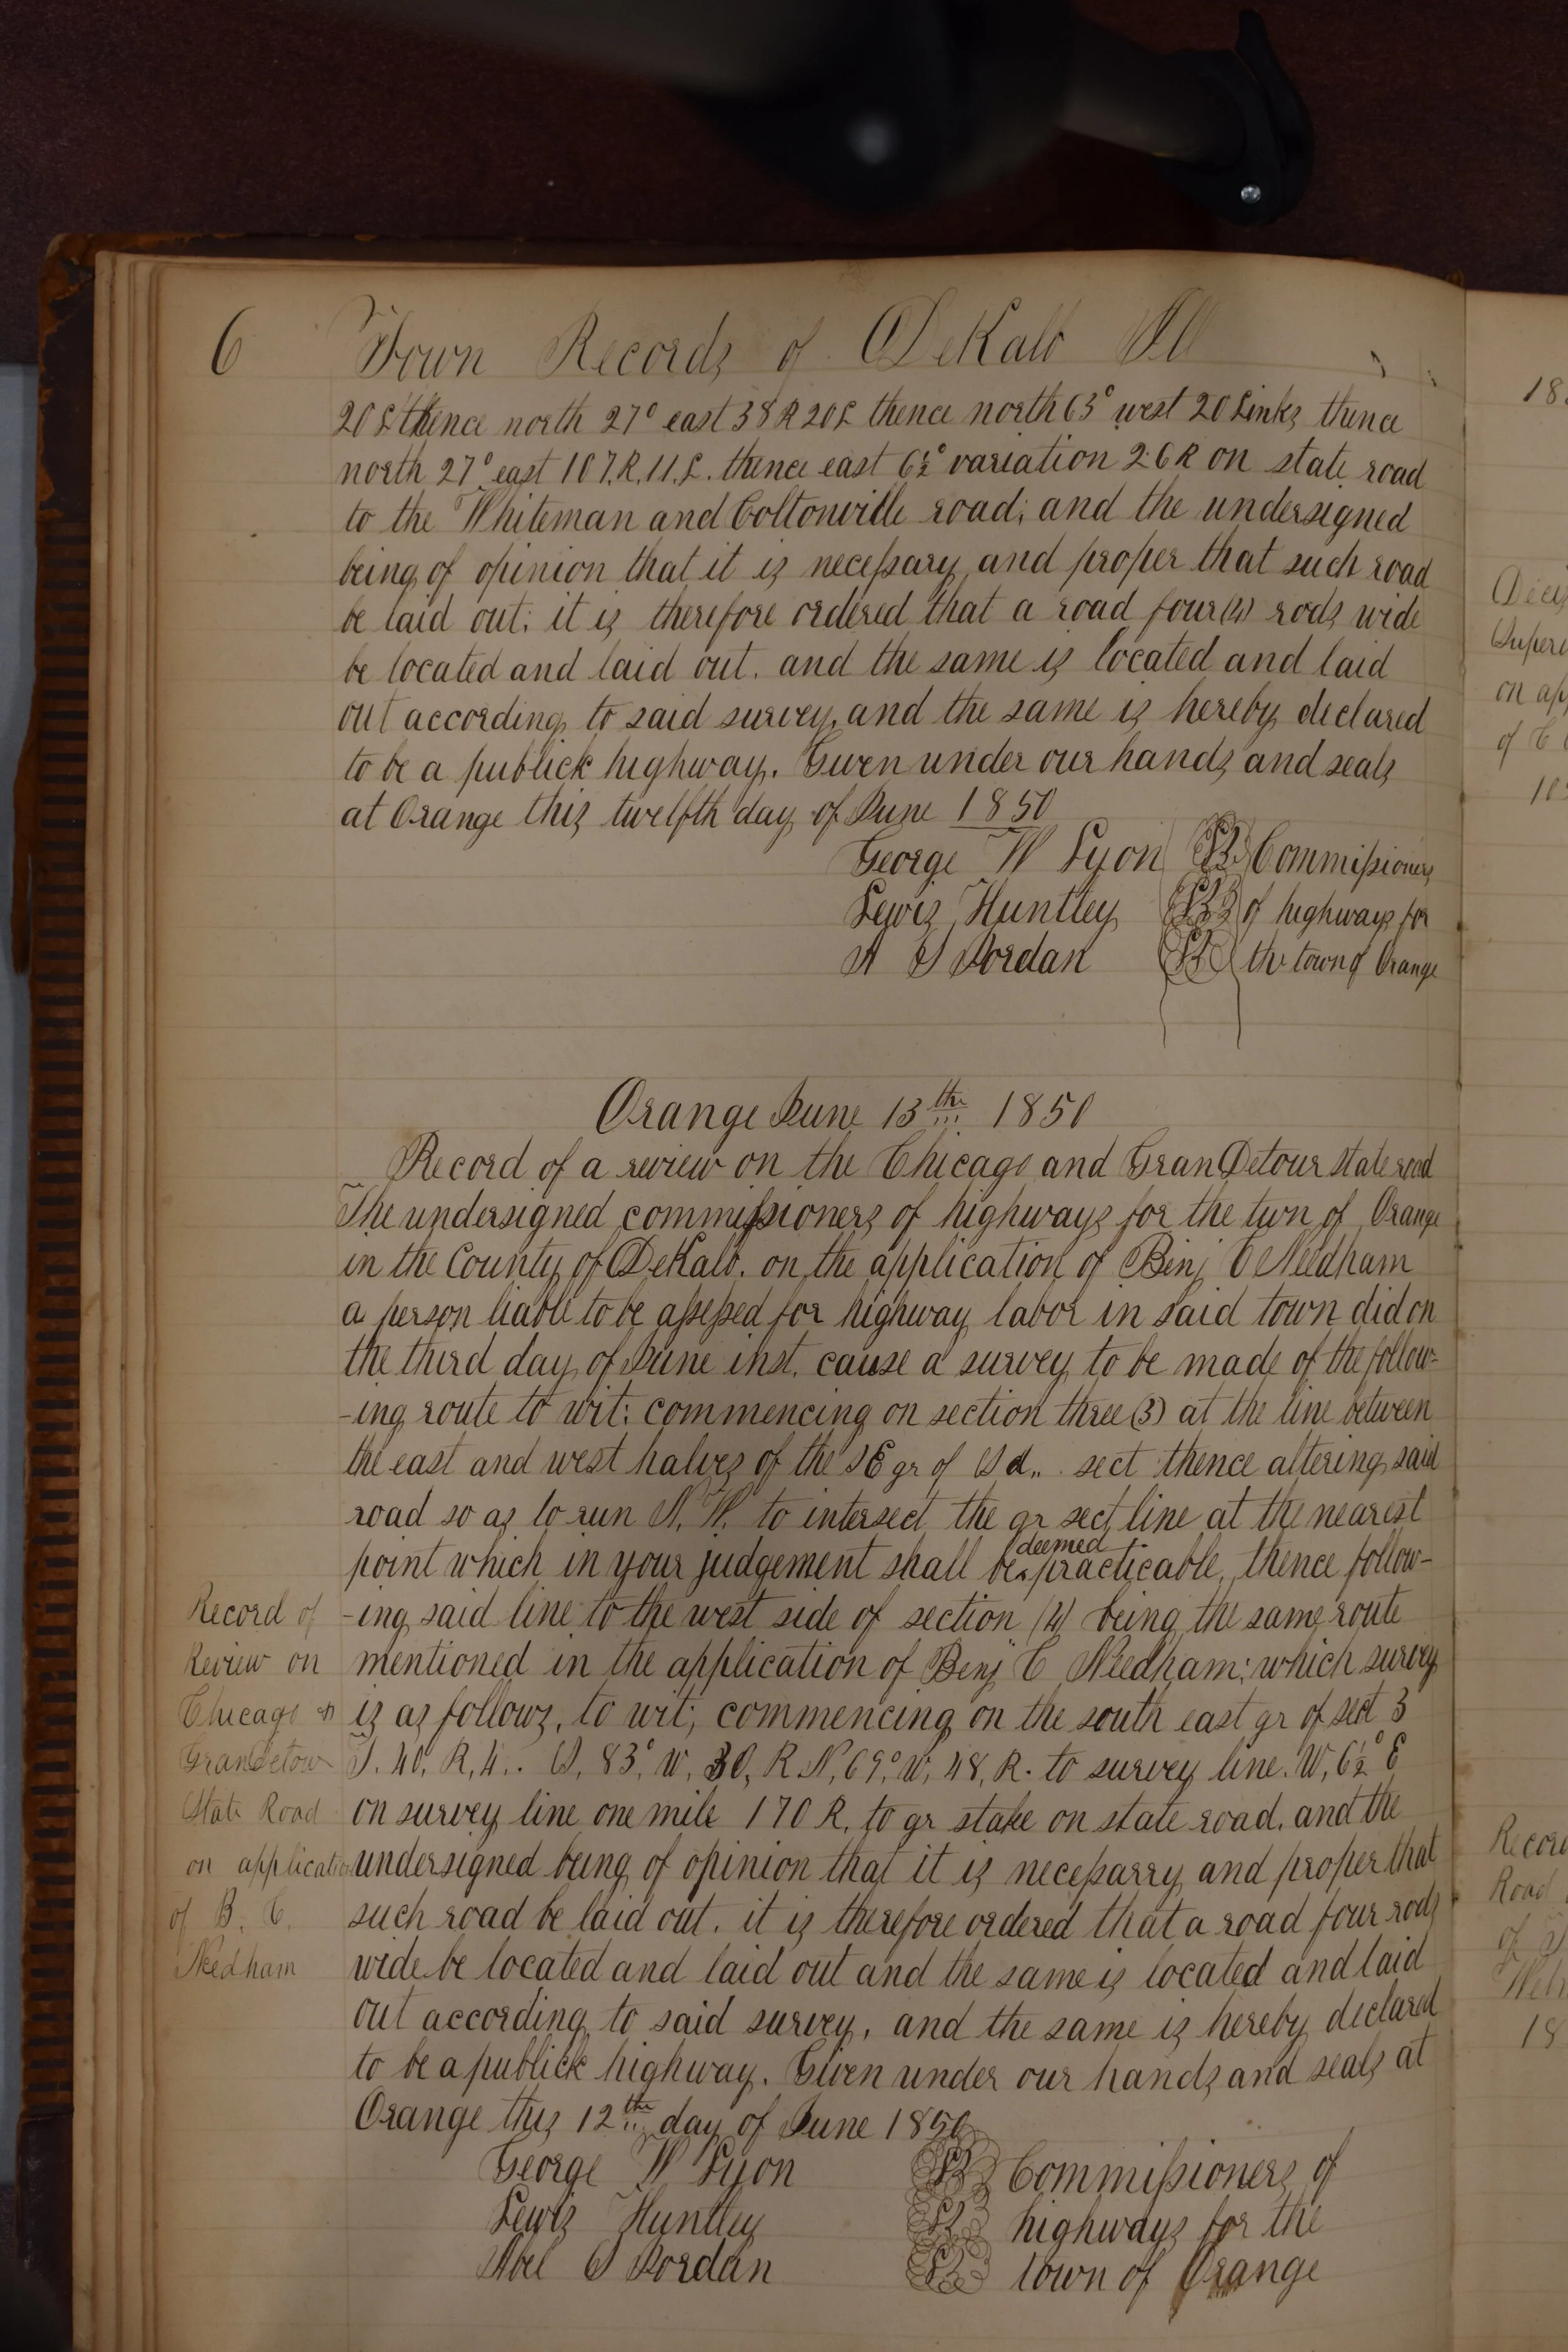 6 Town Records of DeKalb Ill
20 L thence north 27° east 38 R 20 L thence north 63° west 20 Links thence
north 27° east 107. R. 11. L. thence east 6½° variation 26 R on state road
to the Whiteman and Coltonville road; and the undersigned
being of opinion that it is necessary and proper that such road
be laid out; it is therefore ordered that a road four (4) rods wide
be located and laid out. and the same is located and laid
out according to said survey, and the same is hereby declared
to be a publick highway. Given under our hands and seals
at Orange this twelfth day of June 1850
George W Lyon Commissioners
Lewis Huntley of highways for
A S Jordan the town of Orange
Orange June 13th 1850
Record of a review on the Chicago and GranDetour state road
The undersigned commissioners of highways for the twn of Orange
in the County of DeKalb. on the application of Benj C Needham
a person liable to be assessed for highway labor in said town did on
the third day of June inst. cause a survey to be made of the follow-
-ing route to wit: commencing on section three (3) at the line between
the east and west halves of the SE qr of Sd.. sect thence altering said
road so as to run N. W. to intersect the qr sect line at the nearest
point which in your judgement shall be deemed practicable, thence follow-
-ing said line to the west side of section (4) being the same route
mentioned in the application of Benj C Needham; which survey
is as follows, to wit; commencing on the south east qr of sect 3
T. 40, R, 4.. S, 83° W, 30, R N, 69° W, 48, R. to survey line. W, 6½° E
on survey line one mile 170 R. to qr stake on state road. and the
undersigned being of opinion that it is necessarry and proper that
such road be laid out. it is therefore ordered that a road four rods
wide be located and laid out and the same is located and laid
out according to said survey, and the same is hereby declared
to be a publick highway. Given under our hands and seals at
Orange this 12th day of June 1850
George W Lyon Commissioners of
Lewis Huntley highways for the
Abel S Jordan town of Orange
Record of
Review on
Chicago &
Grandetour
State Road
on application
of B. C.
Needham